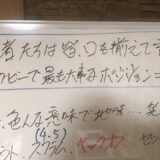 者たちは皆、口を揃えて言
グビーで最も大事なポジション
色んな意味で地味
(4.5)
スクラム キックオフ